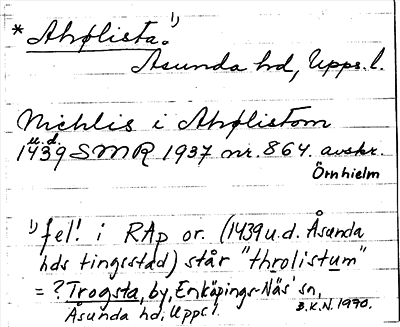 * Ahølista.¹⁾
Åsunda hd, Upps. l.
Nichlis i Ahølistom
u.d.
1439 SMR 1937 nr. 864. avskr.
Örnhielm
¹⁾ fel! i RAp or. (1439 u.d. Åsunda
hds tingsstad) står "throlistum"
= ? Trögsta, by, Enköpings-Näs' sn,
Åsunda hd, Upps l.
B.K.N. 1990.